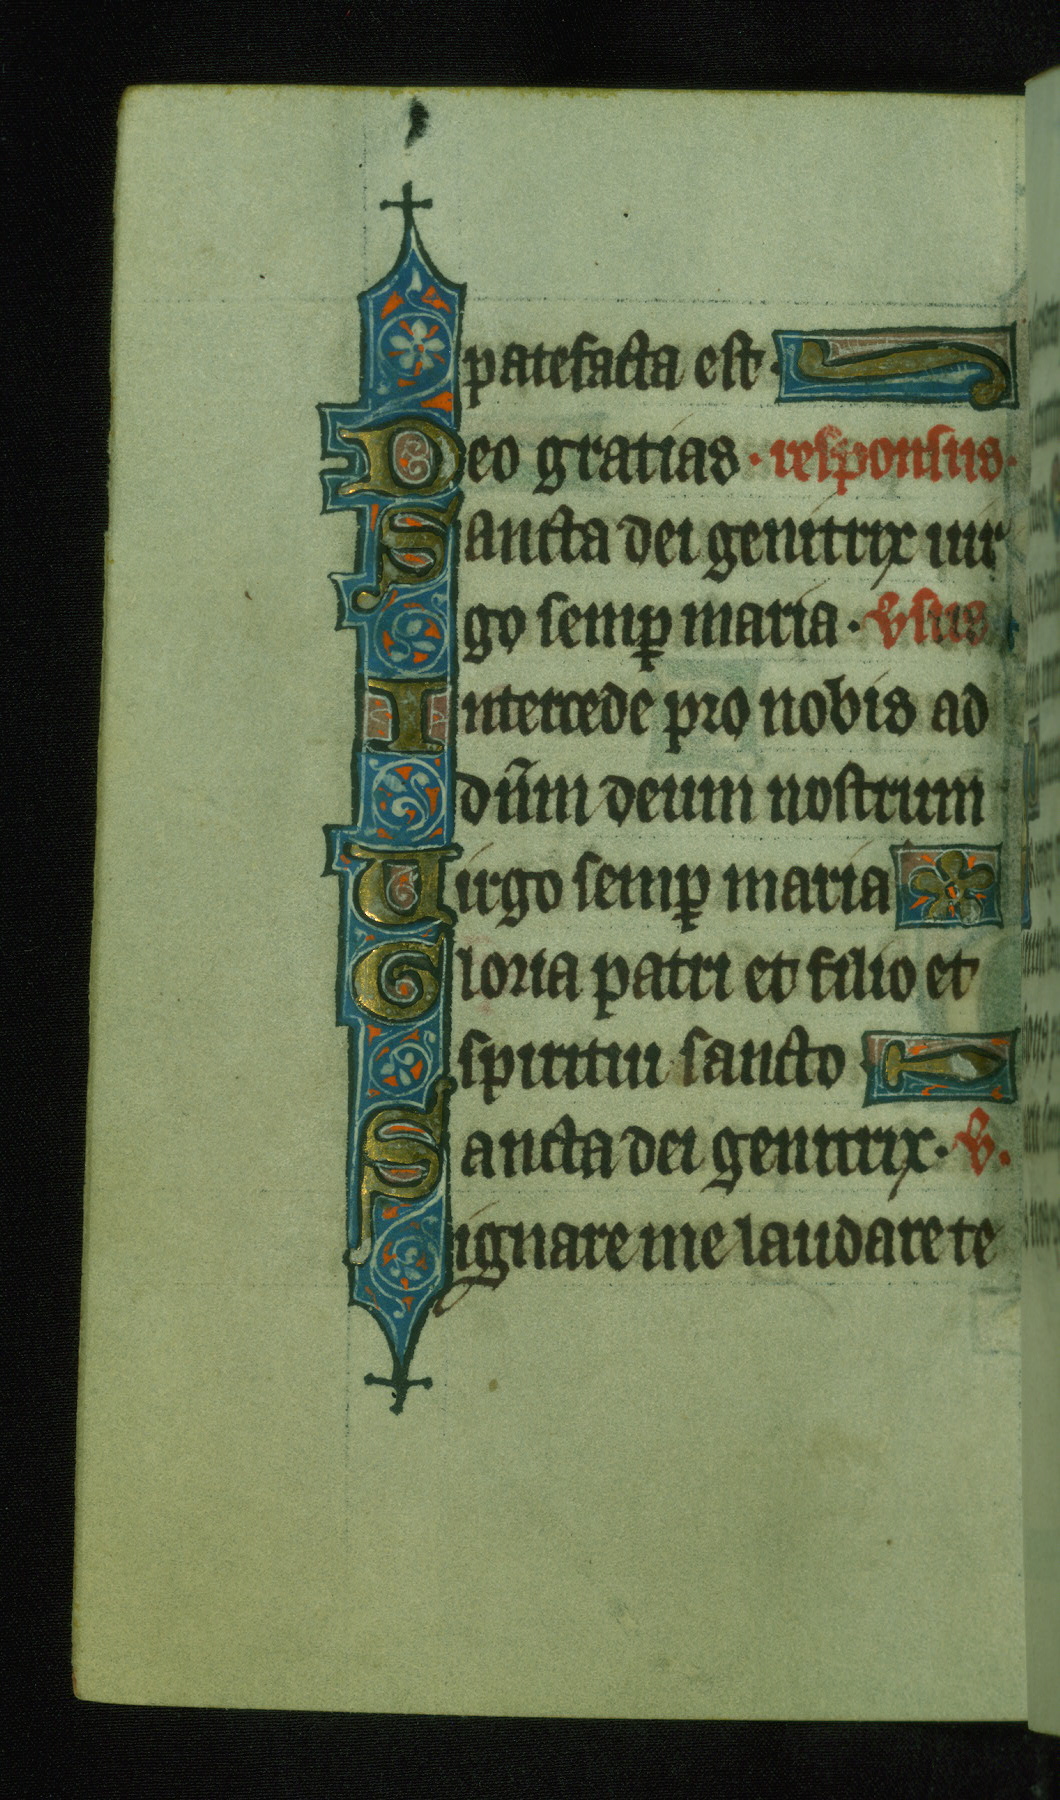 patefacta est.
Deo gratias · responsus ·
Sancta dei genitrix uir
go semꝑ maria · v̄sus
Intercede pro nobis ad
dn̄m deum nostrum
Uirgo semꝑ maria
Gloria patri et filio et
spiritui sancto
Sancta dei genitrix · v̄.
ignare me laudare te